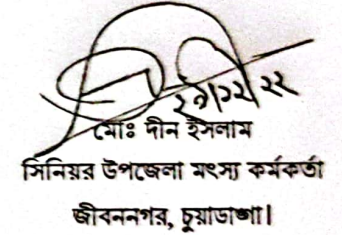 মোঃ দীন ইসলাম
সিনিয়র উপজেলা মৎস্য কর্মকর্তা
জীবননগর, চুয়াডাঙ্গা।